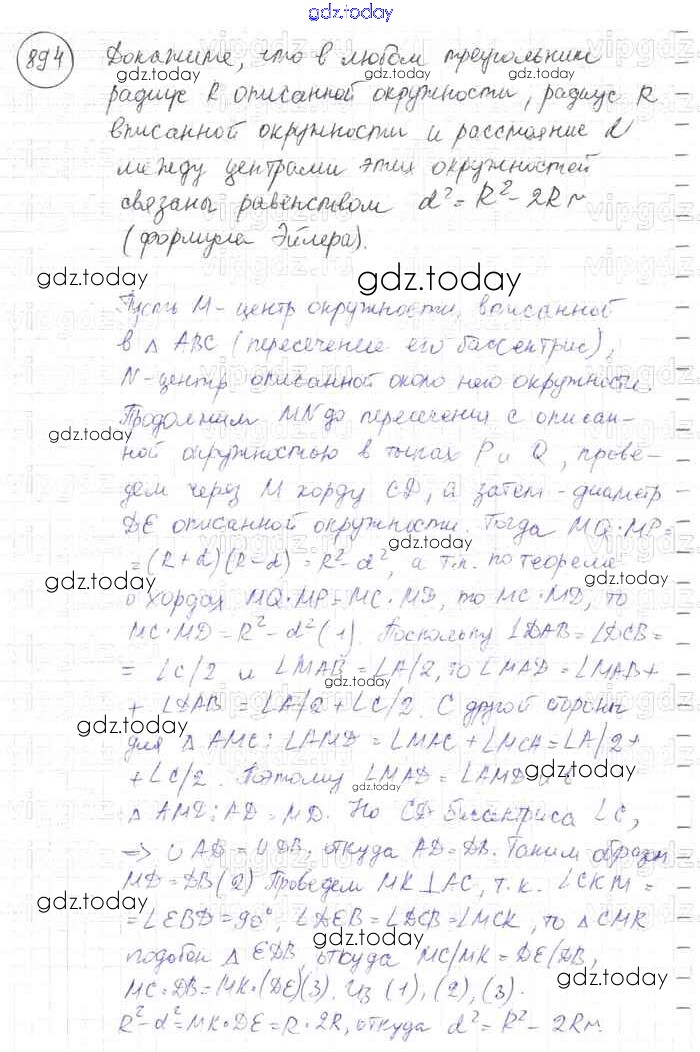 gdz.today
894 Докажите, что в любом треугольнике
радиус R описанной окружности, радиус R
вписанной окружности и расстояние d
между центрами этих окружностей
связаны равенством d² = R² - 2Rr
(формула Эйлера).
gdz.today
Пусть M - центр окружности, вписанной
в △ ABC (пересечение его биссектрис),
N - центр описанной около него окружности.
Продолжим MN до пересечения с описан-
ной окружностью в точках P и Q, прове-
дем через M хорду CD, а затем - диаметр
DE описанной окружности. Тогда MQ·MP =
= (R+d)(R-d) = R²-d², а т.к. по теореме
о хордах MQ·MP = MC·MD, то MC·MD, то
MC·MD = R² - d² (1). Поскольку ∠DAB = ∠DCB =
= ∠C/2 и ∠MAB = ∠A/2, то ∠MAD = ∠MAB +
+ ∠DAB = ∠A/2 + ∠C/2. С другой стороны
для △ AMC: ∠AMD = ∠MAC + ∠MCA = ∠A/2 +
+ ∠C/2. Поэтому ∠MAD = ∠AMD и в
△ AMD: AD = MD. Но CD биссектриса ∠C,
=> ∪ AD = ∪ DB, откуда AD = DB. Таким образом
MD = DB (2) Проведем MK ⊥ AC, т.к. ∠CKM =
= ∠EBD = 90°, ∠DEB = ∠DCB = ∠MCK, то △ CMK
подобен △ EDB, откуда MC/MK = DE/DB,
MC·DB = MK·(DE) (3). Из (1), (2), (3).
R²-d² = MK·DE = R·2R, откуда d² = R² - 2Rr.